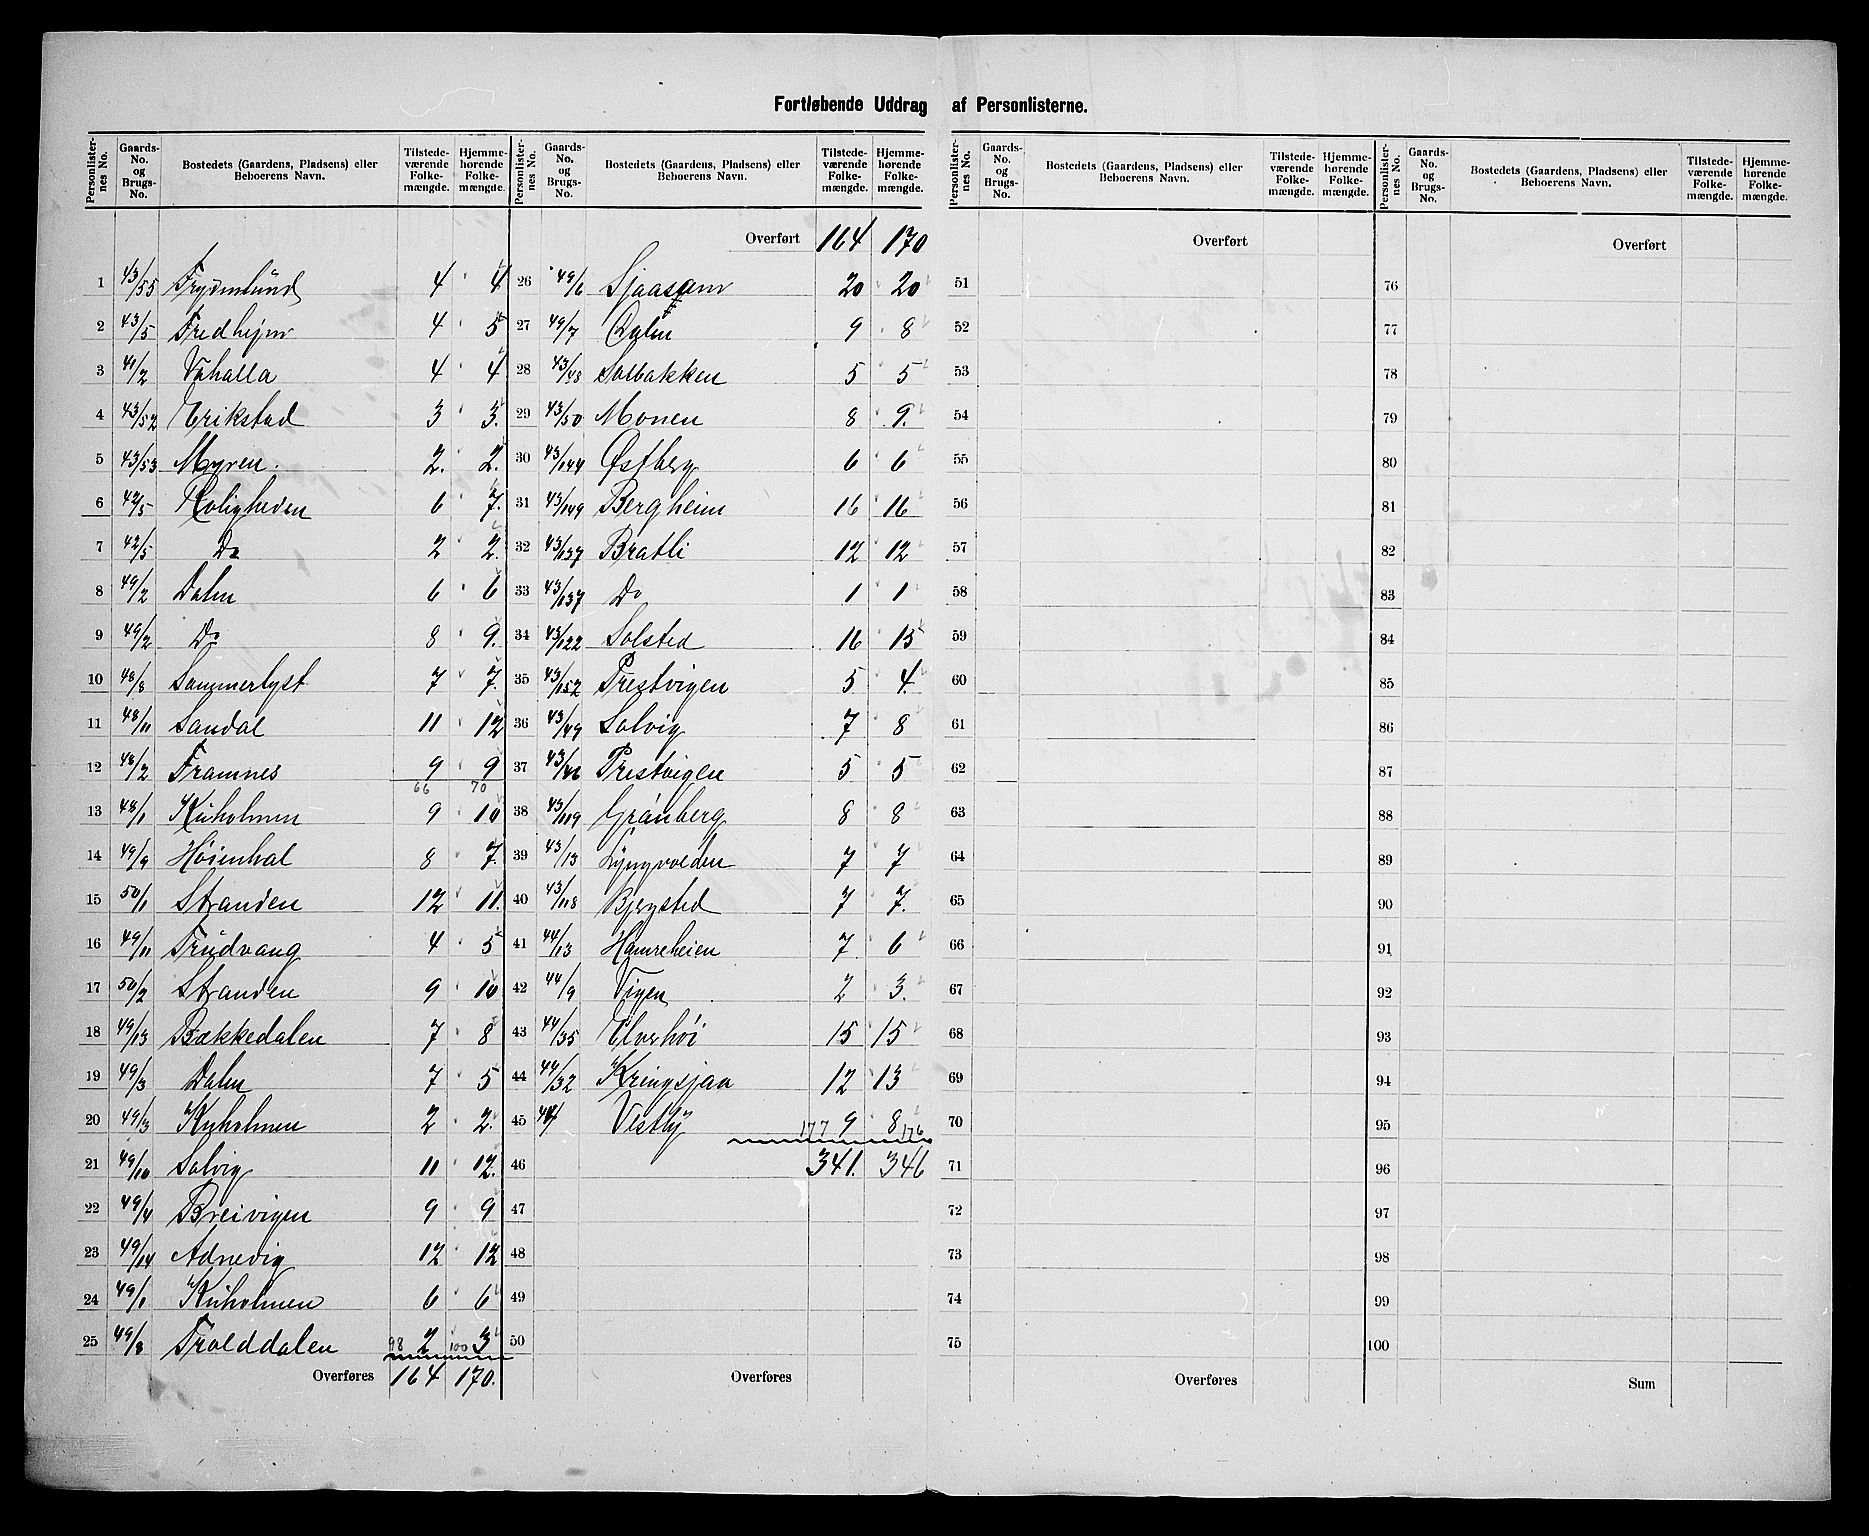 Fortløbende Uddrag af Personlisterne.
Personlister-nes No. Gaards-No. og Brugs-No. Bostedets (Gaardens, Pladsens) eller Beboerens Navn. Tilstede-værende Folke-mængde. Hjemme-hørende Folke-mængde.
1 43/55 Frydenlund 4 4
2 43/5 Fredheim 4 5
3 41/2 Vahalla 4 4
4 43/52 Erikstad 3 3.
5 43/53 Myren. 2. 2.
6 42/5 Roligheden 6 7.
7 42/5 Do 2 2.
8 49/2 Dalen 6 6
9 49/2 Do 8 9.
10 48/8 Sommerlyst 7 7.
11 48/11 Sandal 11 12
12 48/2 Framnes 9 9
66 70
13 48/1 Kuholmen 9 10
14 49/9 8 7.
15 50/1 Stranden 12 11.
16 49/11 Trudvang 4 5
17 50/2 Stranden 9 10
18 49/13 Bækkedalen 7 8
19 49/3 Dalen 7 5
20 49/3 Kuholmen 2 2.
21 49/10 Solvig 11 12.
22 49/4 Breivigen 9 9
23 49/14 Adnevig 12 12
24 49/1 Kuholmen 6 6
25 49/8 Trolddalen 98 2 100 3
Overføres 164 170.
Personlister-nes No. Gaards-No. og Brugs-No. Bostedets (Gaardens, Pladsens) eller Beboerens Navn. Tilstede-værende Folke-mængde. Hjemme-hørende Folke-mængde.
Overført 164 170
26 49/6 Sjaasam 20 20
27 49/7 Dalen 9 8
28 43/48 Solbakken 5 5
29 43/50 Monen 8 9.
30 43/144 Østberg 6 6
31 43/149 Bergheim 16 16
32 43/137 Bratli 12 12
33 43/137 Do 1 1
34 43/122 Solsted 16 15
35 43/152 Prestvigen 5 4.
36 43/49 Solvig 7 8
37 43/46 Prestvigen 5 5
38 43/119 Grønberg 8 8
39 43/13 Lyngvolden 7 7
40 43/118 Bjergsted 7 7.
41 44/13 Hamreheien 7 6
42 44/9 Vigen 2 3.
43 44/35 Elverhöi 15 15
44 44/32 Kringsjaa 12 13
45 44/ Vestby 177 9 8 176
46 341. 346
47
48
49
50
Overføres
Personlister-nes No. Gaards-No. og Brugs-No. Bostedets (Gaardens, Pladsens) eller Beboerens Navn. Tilstede-værende Folke-mængde. Hjemme-hørende Folke-mængde.
Overført
51
52
53
54
55
56
57
58
59
60
61
62
63
64
65
66
67
68
69
70
71
72
73
74
75
Overføres
Personlister-nes No. Gaards-No. og Brugs-No. Bostedets (Gaardens, Pladsens) eller Beboerens Navn. Tilstede-værende Folke-mængde. Hjemme-hørende Folke-mængde.
Overført
76
77
78
79
80
81
82
83
84
85
86
87
88
89
90
91
92
93
94
95
96
97
98
99
100
Sum